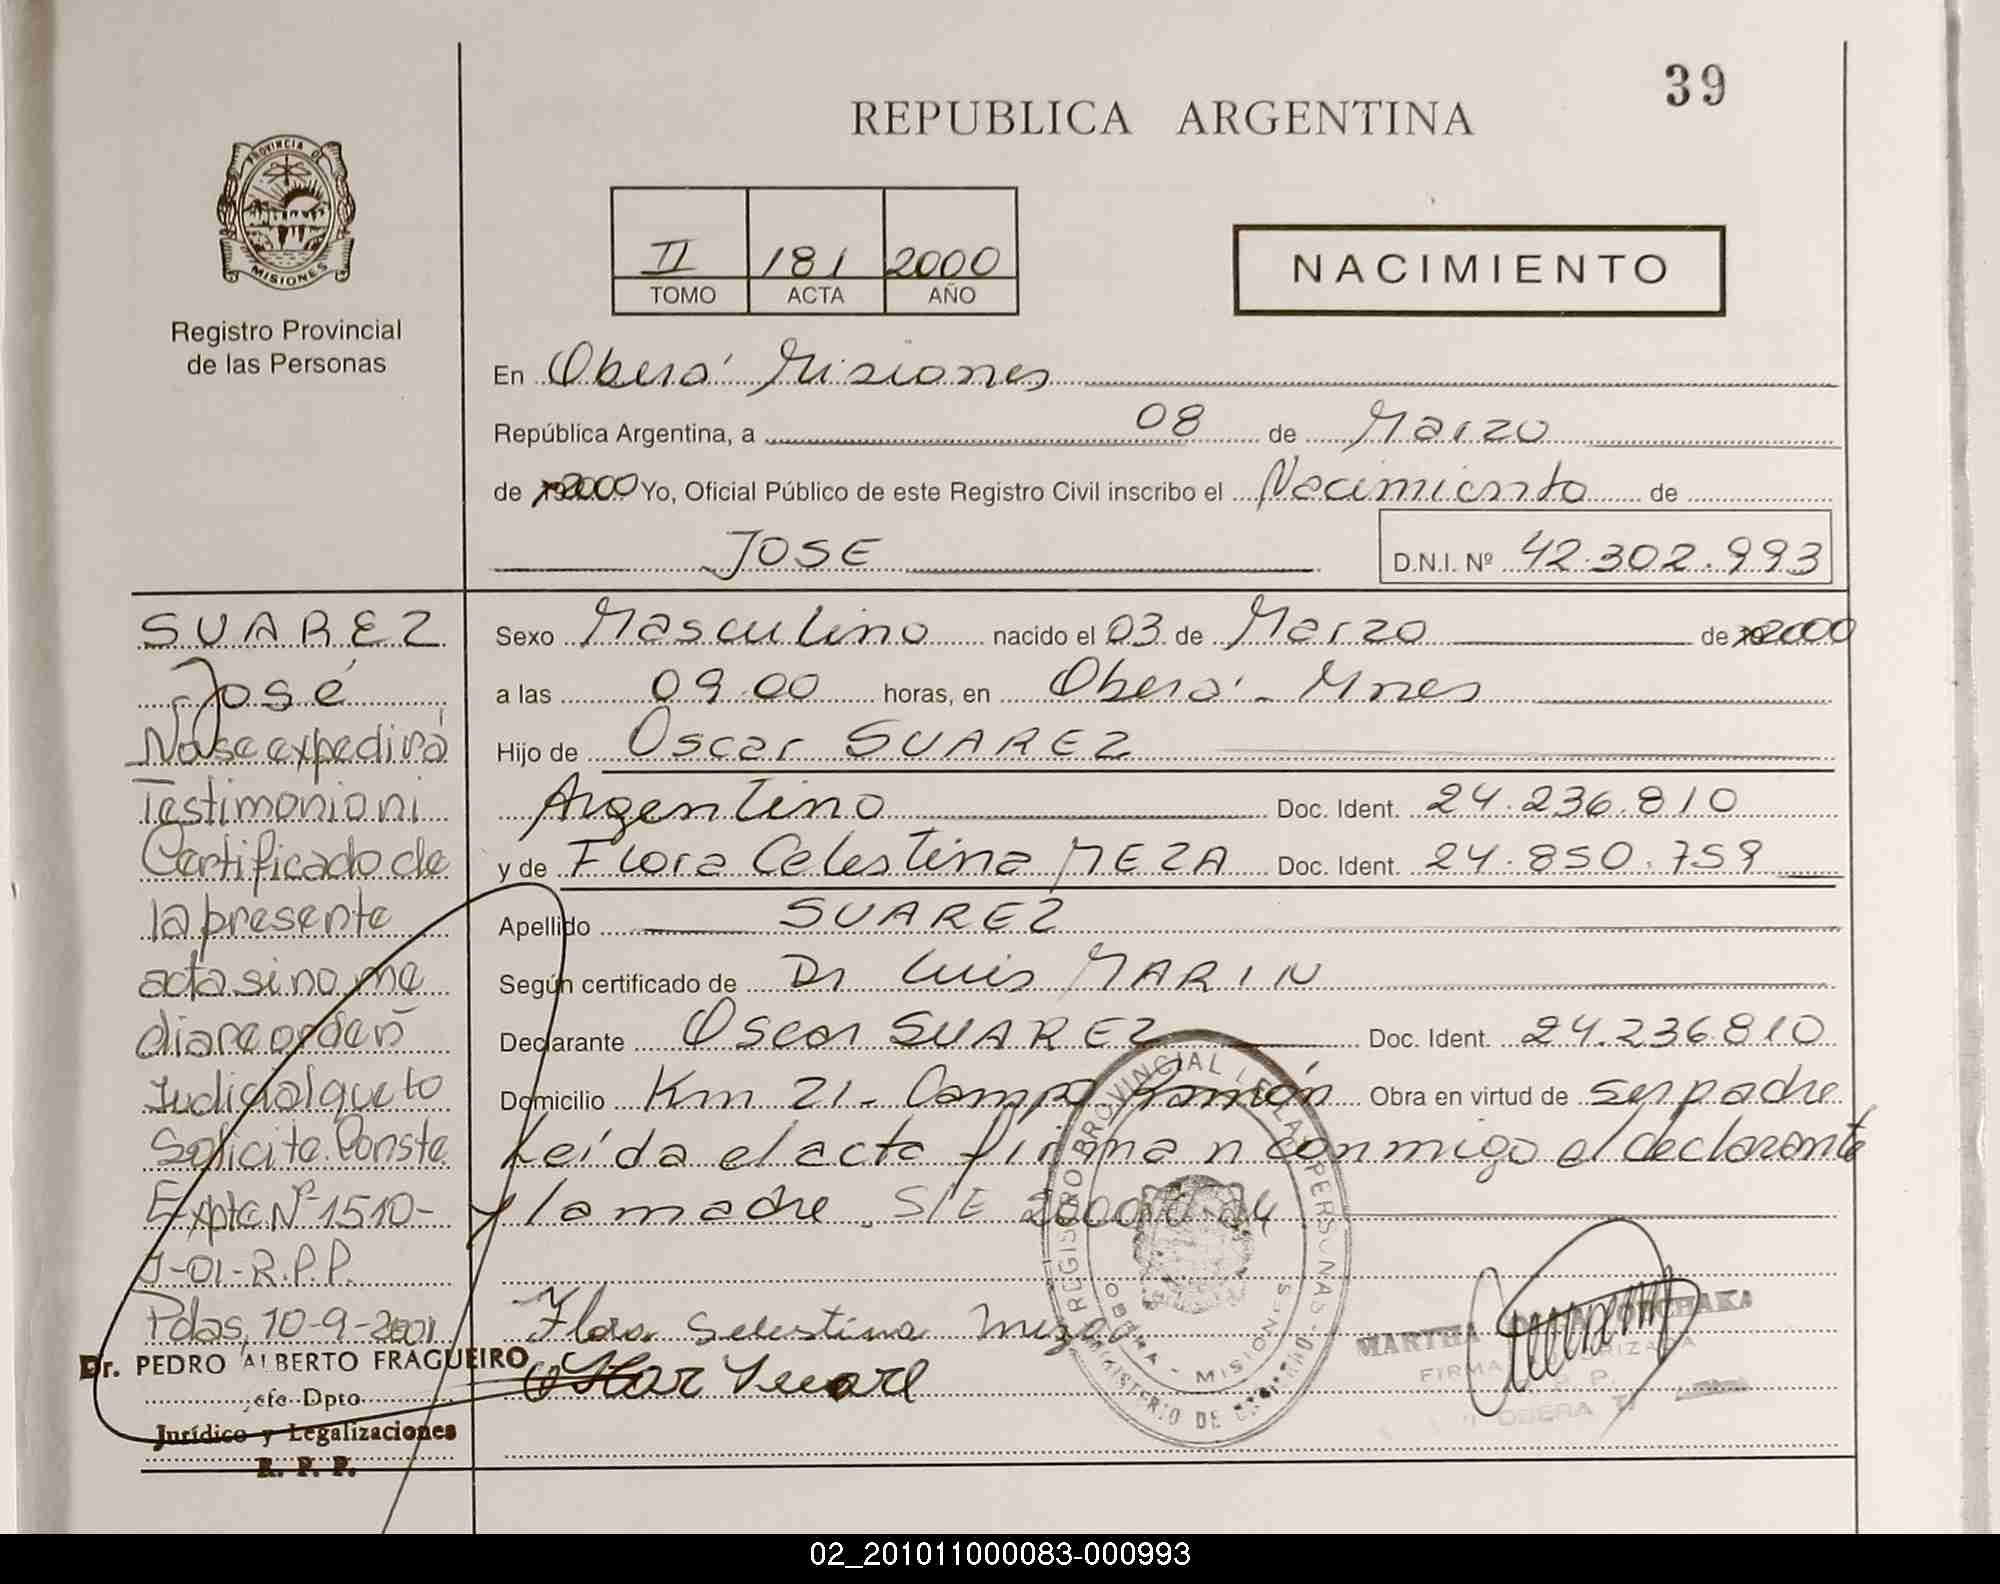 39
REPUBLICA ARGENTINA
PROVINCIA DE
MISIONES
Registro Provincial
de las Personas
II 181 2000
TOMO ACTA AÑO
NACIMIENTO
En Oberá Misiones
República Argentina, a 08 de Marzo
de 2000 Yo, Oficial Público de este Registro Civil inscribo el Nacimiento de
JOSE D.N.I. Nº 42.302.993
SUAREZ
José
No se expedirá
Testimonio ni
Certificado de
la presente
acta si no me
diare orden
Judicial que lo
Solicite. Conste
Expte Nº 1510-
J-01-R.P.P.
Pdas, 10-9-2001
Dr. PEDRO ALBERTO FRAGUEIRO
Jefe Dpto
Jurídico y Legalizaciones
R. P. P.
Sexo Masculino nacido el 03 de Marzo de 2000
a las 09.00 horas, en Oberá - Mnes
Hijo de Oscar SUAREZ
Argentino Doc. Ident. 24.236.810
y de Flora Celestina MEZA Doc. Ident. 24.850.759
Apellido SUAREZ
Según certificado de Dr Luis MARIN
Declarante Oscar SUAREZ Doc. Ident. 24.236.810
Domicilio Km 21 - Campo Ramón Obra en virtud de ser padre
Leída el acta firman conmigo el declarante
y la madre. S/E 2000
Flora Selestina Meza
REGISTRO PROVINCIAL DE LAS PERSONAS
OBERA - MISIONES
MINISTERIO DE
MARTHA
FIRMA AUTORIZADA
R. P. P.
OBERA
02_201011000083-000993